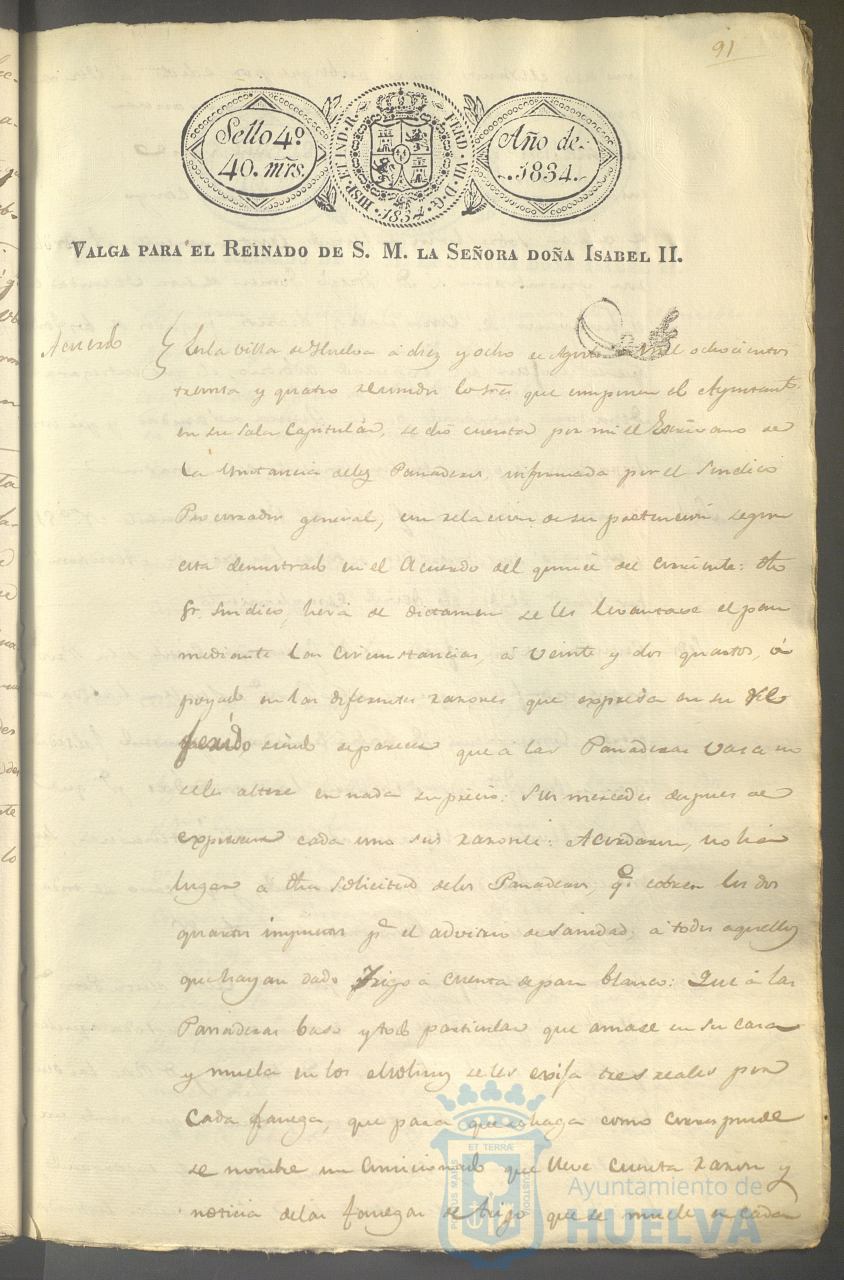 91
Sello 4º
40. mrs.
HISP. ET IND. R. FERD. VII. D. G.
1834
Año de
1834.
VALGA PARA EL REINADO DE S. M. LA SEÑORA DOÑA ISABEL II.
Acuerdo
En la villa de Huelva á diez y ocho de Agosto mil ochocientos
treinta y quatro reunidos los Sres que componen el Ayuntamto
en su Sala Capitulár, se dió cuenta por mi el Escrivano de
la Instancia de los Panaderos, informada por el Sindico
Procurador general, en relacion de su pretencion segun
esta demostrado en el Acuerdo del quince del corriente: dho
Sr. Sindico, hera de dictamen se les levantase el pan
mediante las circunstancias, á veinte y dos quartos, á
poyado en las diferentes razones que expresa en su re
ferido siendo de parecer que á las Panaderas vasa no
se les altere en nada su precio: Sus mercedes despues de
expresar cada uno sus razones: Acordaron, no há
lugar á dha solicitud de los Panaderos, qe. cobren los dos
quartos impuestos pr. el advitrio de Sanidad, á todos aquellos
que hayan dado Trigo á cuenta de pan blanco: Que á las
Panaderas baso y todo particular que amase en su casa
y muela en los Molinos se les exija tres reales por
cada fanega, que para que se haga como corresponde
se nombre un Comicionado que lleve cuenta razon y
noticia de las fanegas de trigo que se muele en cada
PORTUS MARIS ET TERRÆ CUSTODIA
Ayuntamiento de
HUELVA